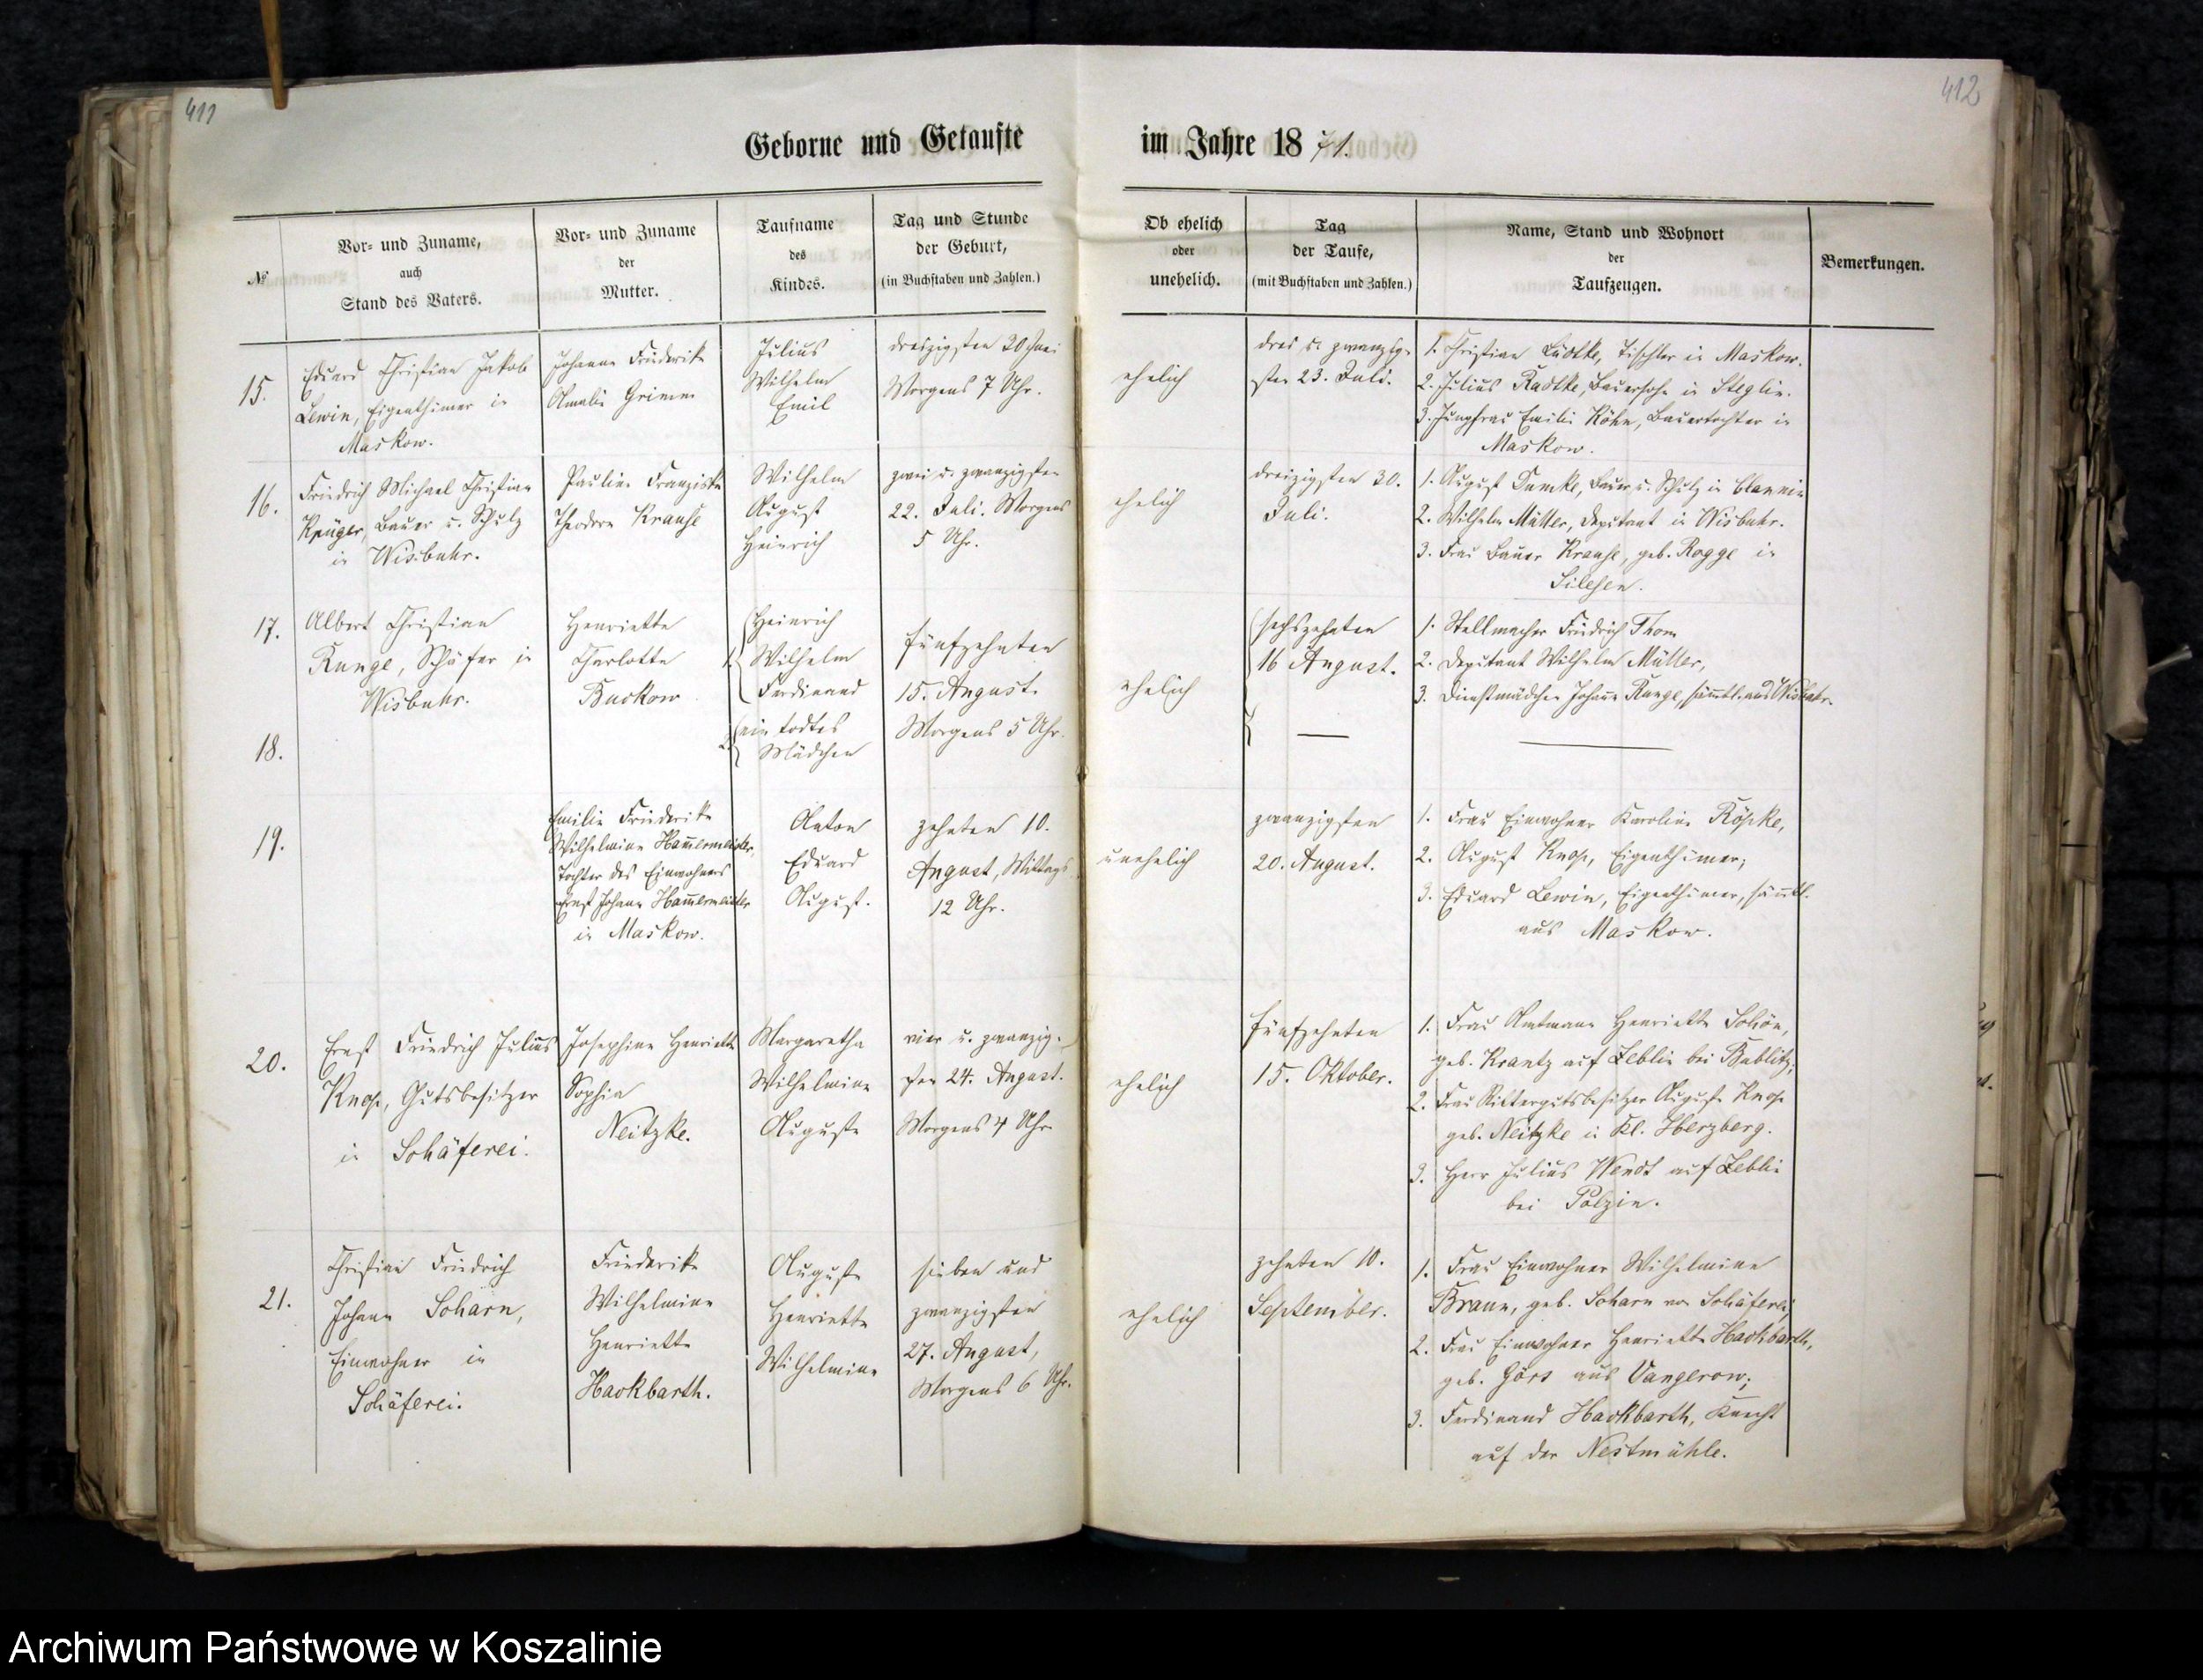 411
412
Geborne und Getaufte
im Jahre 1871.
№
Vor- und Zuname,
auch
Stand des Vaters.
Vor- und Zuname
der
Mutter.
Taufname
des
Kindes.
Tag und Stunde
der Geburt,
(in Buchstaben und Zahlen.)
Ob ehelich
oder
unehelich.
Tag
der Taufe,
(mit Buchstaben und Zahlen.)
Name, Stand und Wohnort
der
Taufzeugen.
Bemerkungen.
15.
Eduard Christian Jakob
Lewin, Eigenthümer in
Maskow.
Johanne Friederike
Amalie Grimm
Julius
Wilhelm
Emil
dreizigsten 30 Juni
Morgens 7 Uhr.
ehelich
drei u. zwanzig-
sten 23. Juli.
1. Christian Lüdtke, Tischler in Maskow.
2. Julius Radtke, Bauersohn in Steglin.
3. Jungfrau Emilie Köhn, Bauertochter in
Maskow.
16.
Friedrich Michael Christian
Krüger, Bauer u. Schulz
in Wisbuhr.
Pauline Franziska
Theodore Krause
Wilhelm
August
Heinrich
zwei u. zwanzigsten
22. Juli. Morgens
5 Uhr.
ehelich
dreizigsten 30.
Juli.
1. August Damke, Bauer u. Schulz in Clannin
2. Wilhelm Müller, Deputant in Wisbuhr.
3. Frau Bauer Krause, geb. Rogge in
Silesen.
17.
Albert Christian
Runge, Schäfer in
Wisbuhr.
Henriette
Charlotte
Buckow
1. Heinrich
Wilhelm
Ferdinand
fünfzehnten
15. August.
Morgens 5 Uhr.
ehelich
sechszehnten
16 August.
1. Stellmacher Friedrich Thom
2. Deputant Wilhelm Müller,
3. Dienstmädchen Johann Runge, sämtl. aus Wisbuhr.
18.
2. ein todtes
Mädchen
—
—
19.
Emilie Friederike
Wilhelmine Ham̅ermeister,
Tochter des Einwohners
Ernst Johann Ham̅ermeister
in Maskow.
Anton
Eduard
August.
zehnten 10.
August, Mittags
12 Uhr.
unehelich
zwanzigsten
20. August.
1. Frau Einwohner Karoline Röpke,
2. August Knop, Eigenthümer;
3. Eduard Lewin, Eigenthümer, säm̅tl.
aus Maskow.
20.
Ernst Friedrich Julius
Knop, Gutsbesitzer
in Schäferei.
Josephine Henriette
Sophie
Neitzke.
Margaretha
Wilhelmine
Auguste
vier u. zwanzig-
sten 24. August.
Morgens 4 Uhr
ehelich
fünfzehnten
15. Oktober.
1. Frau Amtmann Henriette Schön,
geb. Krantz auf Zeblin bei Bublitz,
2. Frau Rittergutsbesitzer Auguste Knop
geb. Neitzke in Kl. Herzberg.
3. Herr Julius Wendt auf Zeblin
bei Polzin.
21.
Christian Friedrich
Johann Scharn,
Einwohner in
Schäferei.
Friederike
Wilhelmine
Henriette
Hackbarth.
Auguste
Henriette
Wilhelmine
sieben und
zwanzigsten
27. August,
Morgens 6 Uhr.
ehelich
zehnten 10.
September.
1. Frau Einwohner Wilhelmine
Braun, geb. Scharn von Schäferei
2. Frau Einwohner Henriette Hackbarth,
geb. Görs aus Vangerow;
3. Ferdinand Hackbarth, Knecht
auf der Nestmühle.
Archiwum Państwowe w Koszalinie